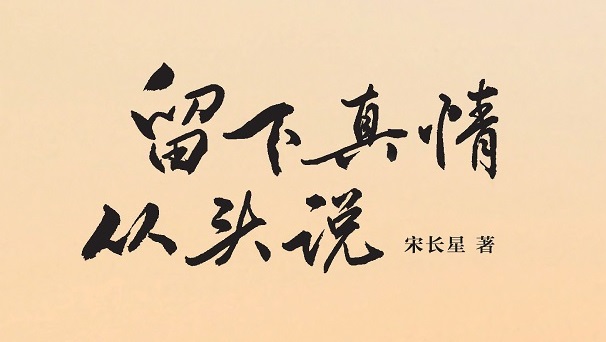 留下真情
从头说
宋长星 著